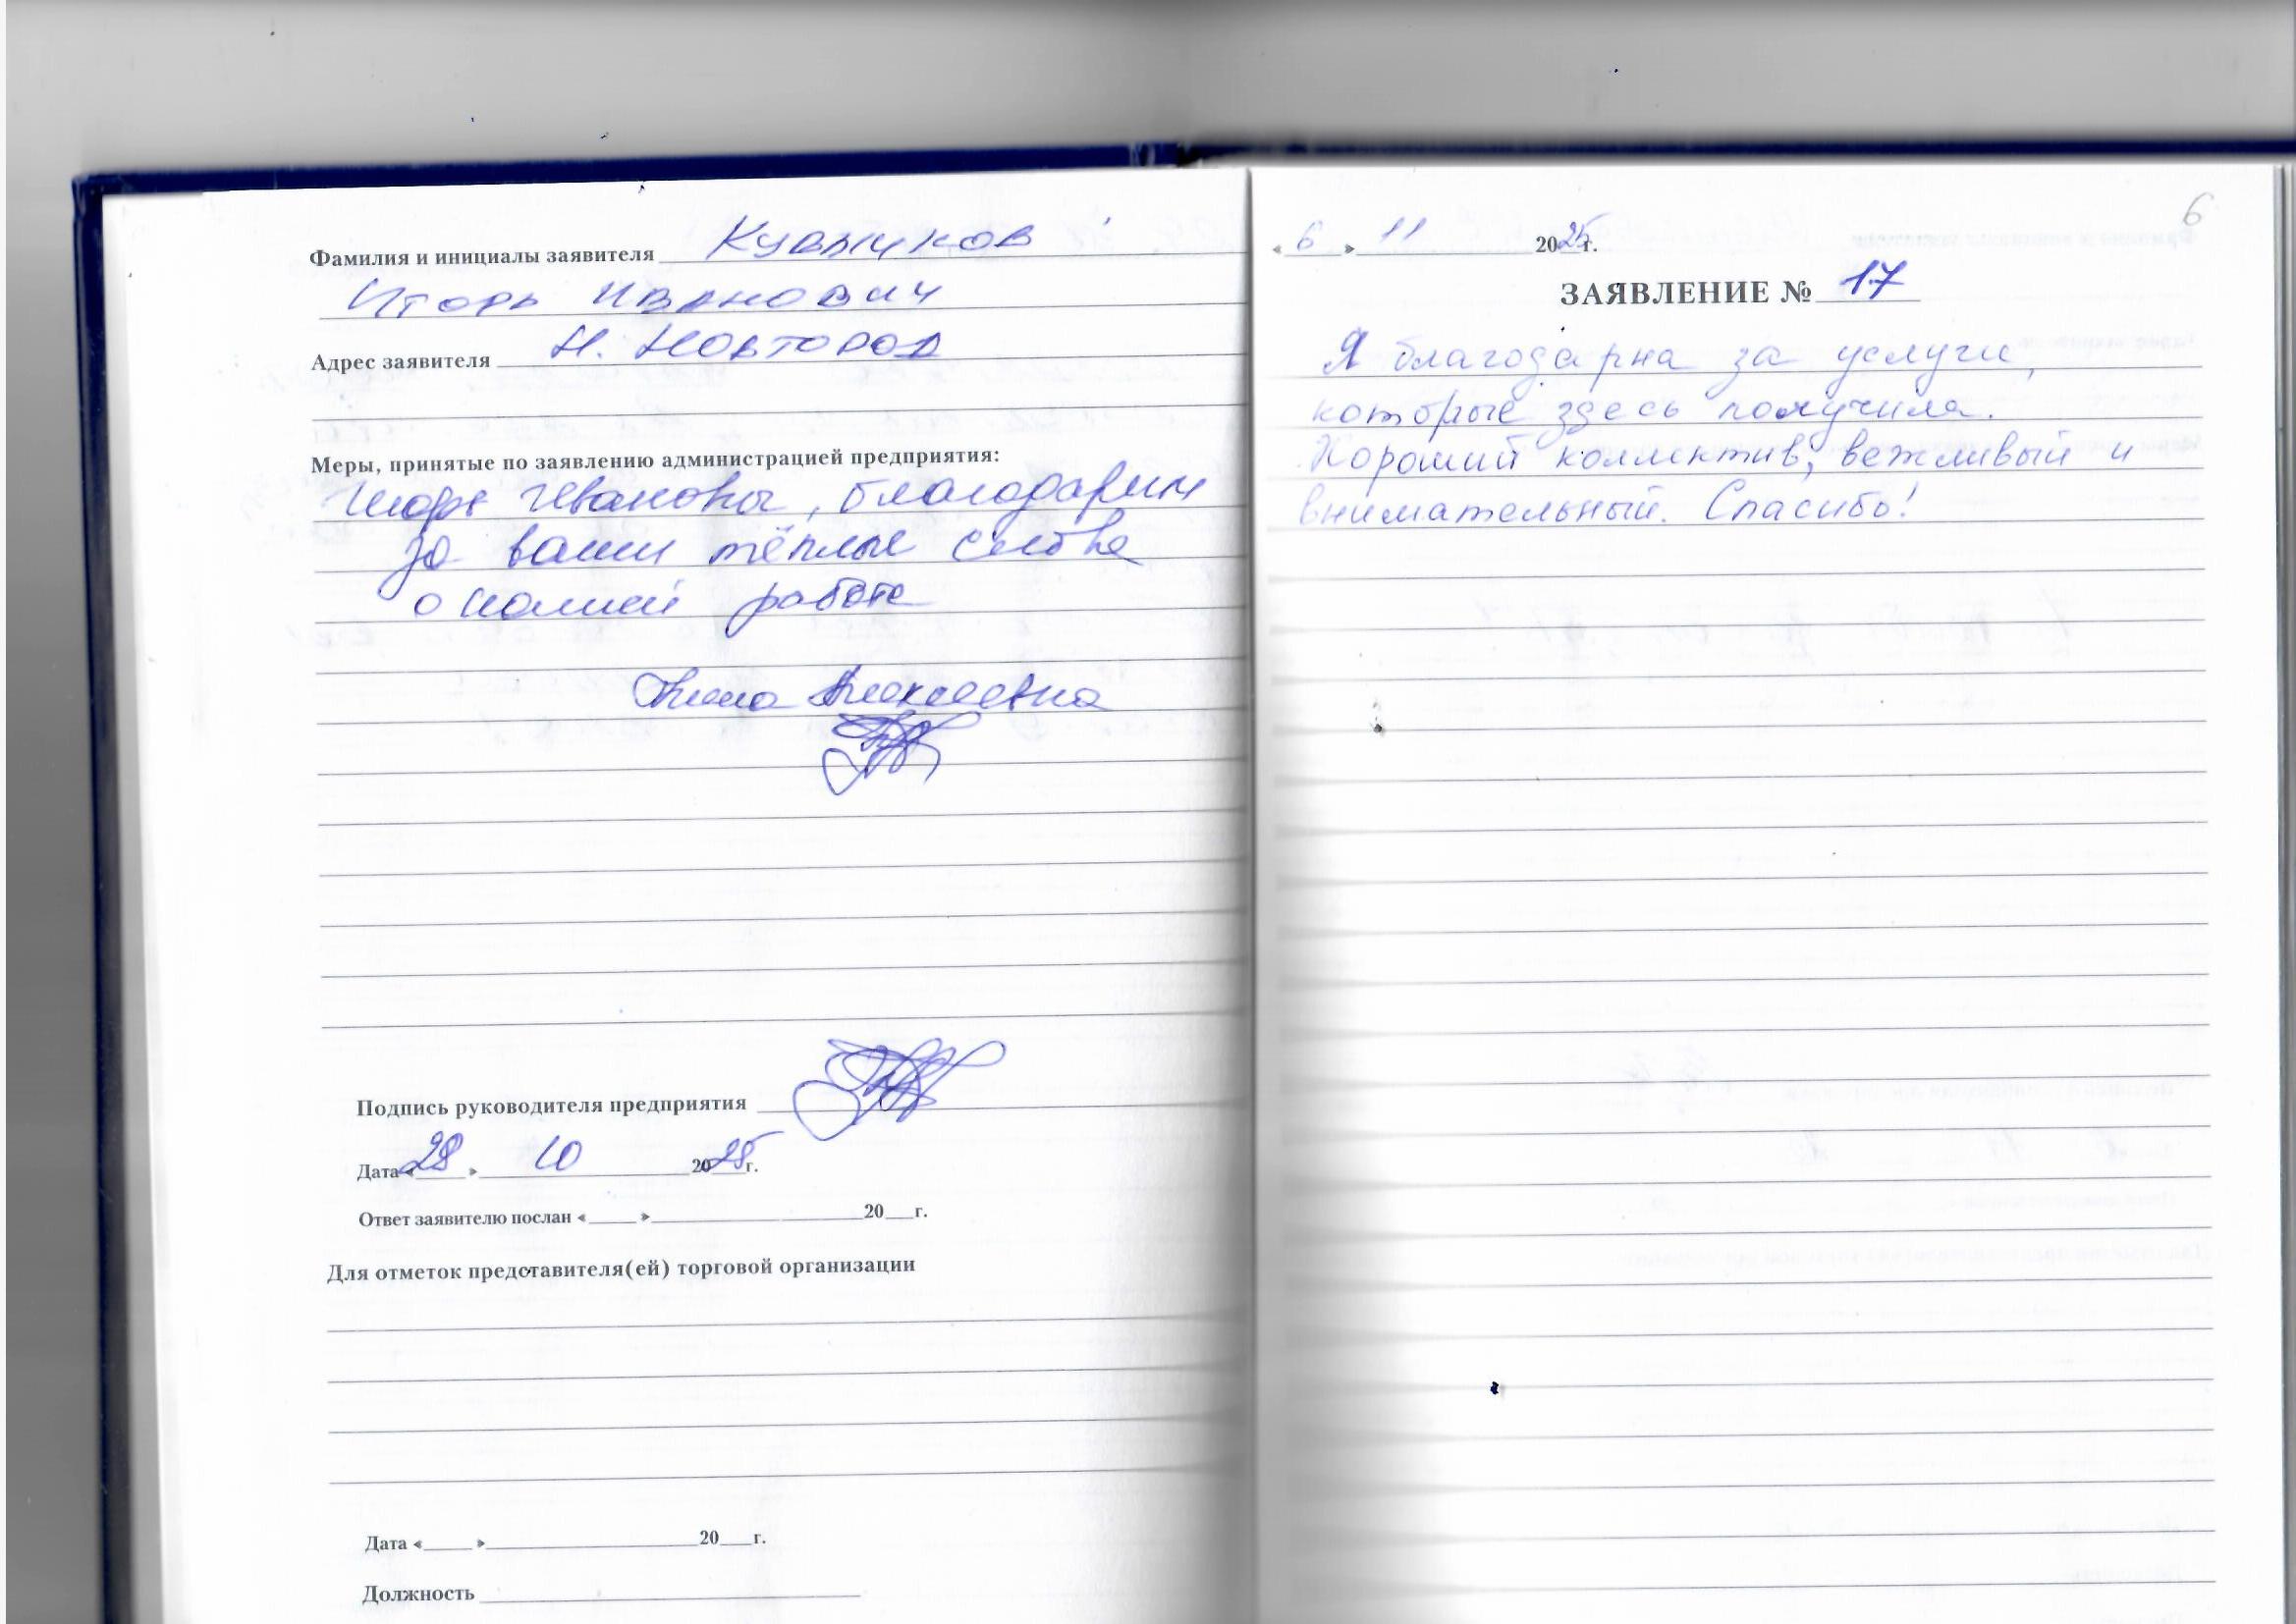 Фамилия и инициалы заявителя Кувыков
Игорь Иванович
Адрес заявителя Н. Новгород
Меры, принятые по заявлению администрацией предприятия:
Игорь Иванович, благодарим
за ваши тёплые слова
о нашей работе
Алексеевна
Подпись руководителя предприятия
Дата «28» 10 2025 г.
Ответ заявителю послан «____» ____ 20__г.
Для отметок представителя(ей) торговой организации
Дата «____» ____ 20__г.
Должность
6
«6» 11 2025 г.
ЗАЯВЛЕНИЕ № 17
Я благодарна за услуги,
которые здесь получила.
Хороший коллектив, вежливый и
внимательный. Спасибо!